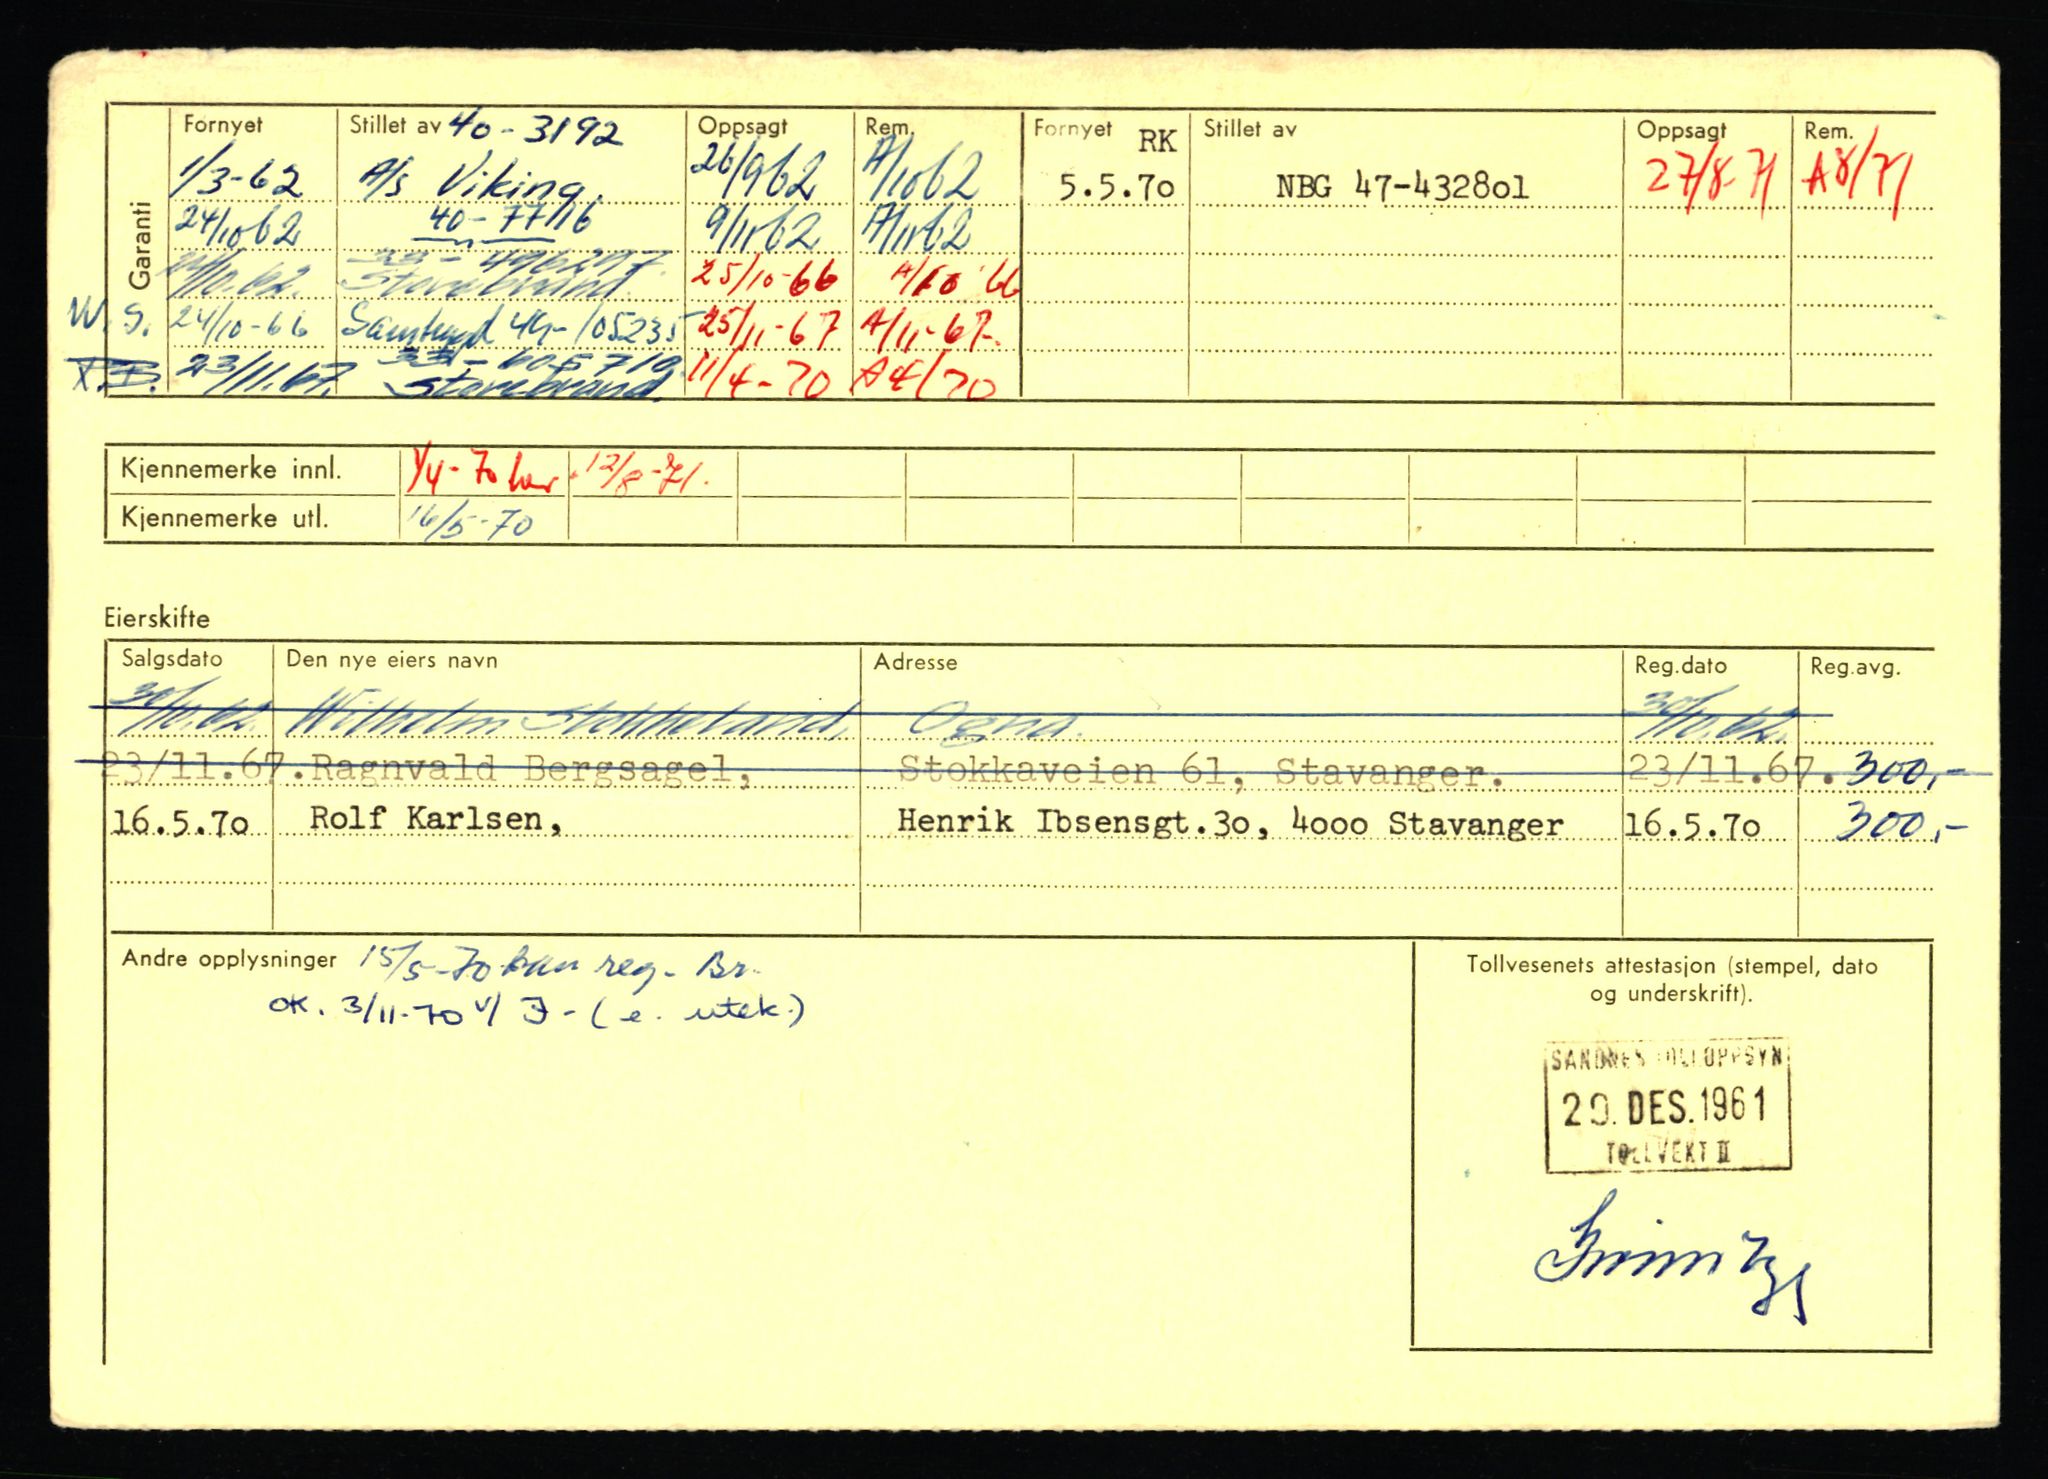 Garanti
Fornyet Stillet av 40-3192 Oppsagt Rem. Fornyet RK Stillet av Oppsagt Rem.
1/3-62 A/s Viking. 26/962 A/1062 5.5.70 NBG 47-432801 27/8-71 A8/71
24/1062 40-7716 9/1162 A/1162
Storebrand. 25/10-66 A/10 '66
W.S. 24/10-66 Samtrygd 44-105235 25/11-67 A/11-67.
23/11.67. Storebrand. 11/4-70 A4/70
Kjennemerke innl. 1/4-70 12/8-71.
Kjennemerke utl. 16/5-70
Eierskifte
Salgsdato Den nye eiers navn Adresse Reg.dato Reg.avg.
30/10.62. Wilhelm Stokkeland, Ogna. 30/10.62.
23/11.67. Ragnvald Bergsagel, Stokkaveien 61, Stavanger. 23/11.67. 300,-
16.5.70 Rolf Karlsen, Henrik Ibsensgt.30, 4000 Stavanger 16.5.70 300,-
Andre opplysninger 15/5-70 kan reg. Br.
OK. 3/11-70 v/ J-(e. utek.)
Tollvesenets attestasjon (stempel, dato
og underskrift).
SANDNES TOLLOPPSYN
20. DES. 1961
TOLLVEKT II